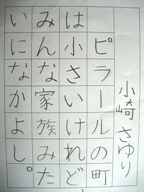 小崎 さゆり
ピラールの町
は小さいけれど、
みんな家族みた
いになかよし。